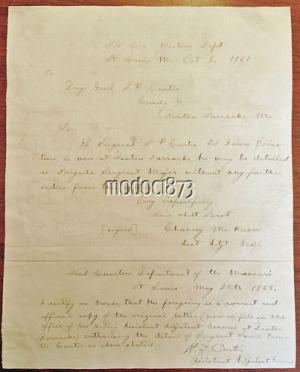 Hd Qrs Western Dept
St Louis Mo Oct 8, 1861
To
Brig Genl S R Curtis
Comdg &c
Benton Barracks Mo
Sir
If Sergeant S P Curtis 2d Iowa Volun
teers, is now at Benton Barracks, he may be detailed
as Brigade Sergeant Major without any further
orders from
Very respectfully
Your obdt Servt
[signed] Chauncey McKeever
Asst Adjt Genl
modoc1873
Head Quarters Department of the Missouri
St Louis May 20th 1863.
I certify on honor that the foregoing is a correct and
official copy of the original letter (now on file in the
office of the Acting Assistant Adjutant General at Benton
Barracks) authorizing the detail of Sergeant
Curtis as above stated.
Curtis
Assistant Adjutant General